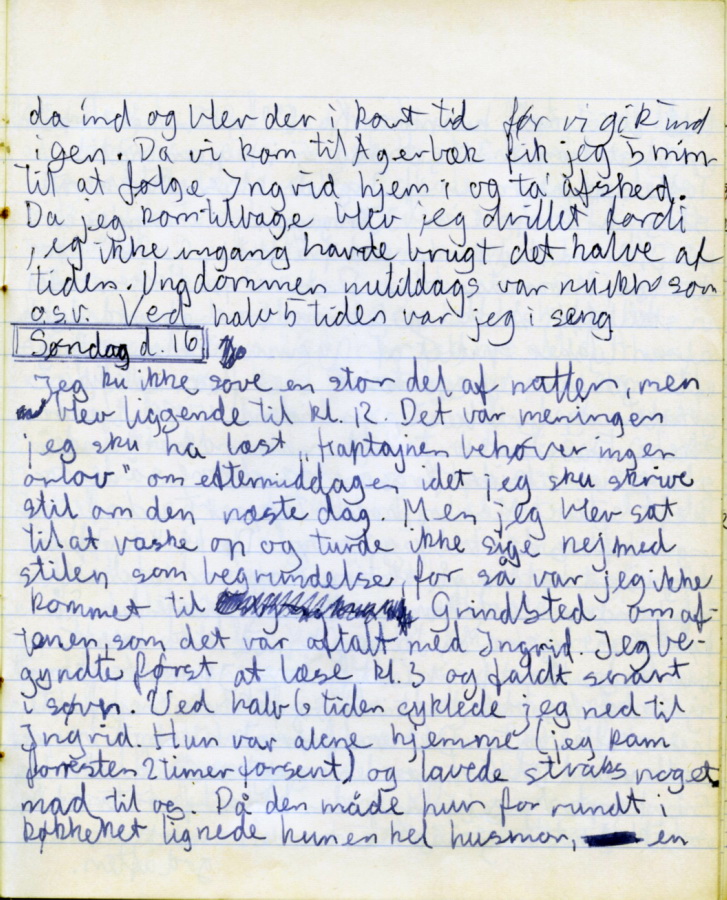 da ind og blev der i kort tid før vi gik ind
igen. Da vi kom til Agerbæk fik jeg 5 min
til at følge Ingrid hjem i og ta' afsked.
Da jeg kom tilbage blev jeg drillet fordi
jeg ikke engang havde brugt det halve af
tiden. Ungdommen nutildags var som
osv. Ved halv 5 tiden var jeg i seng
Søndag d. 16
Jeg ku ikke sove en stor del af natten, men
blev liggende til kl. 12. Det var meningen
jeg sku ha læst „Kaptajnen behøver ingen
orlov" om eftermiddagen idet jeg sku skrive
stil om den næste dag. Men jeg blev sat
til at vaske op og turde ikke sige nej med
stilen som begrundelse, for så var jeg ikke
kommet til Grindsted om af-
tenen, som det var aftalt med Ingrid. Jeg be-
gyndte først at læse kl. 3 og faldt snart
i søvn. Ved halv 6 tiden cyklede jeg ned til
Ingrid. Hun var alene hjemme (jeg kom
forresten 2 timer forsent) og lavede straks noget
mad til os. På den måde hun for rundt i
køkkenet lignede hun en hel husmor, en